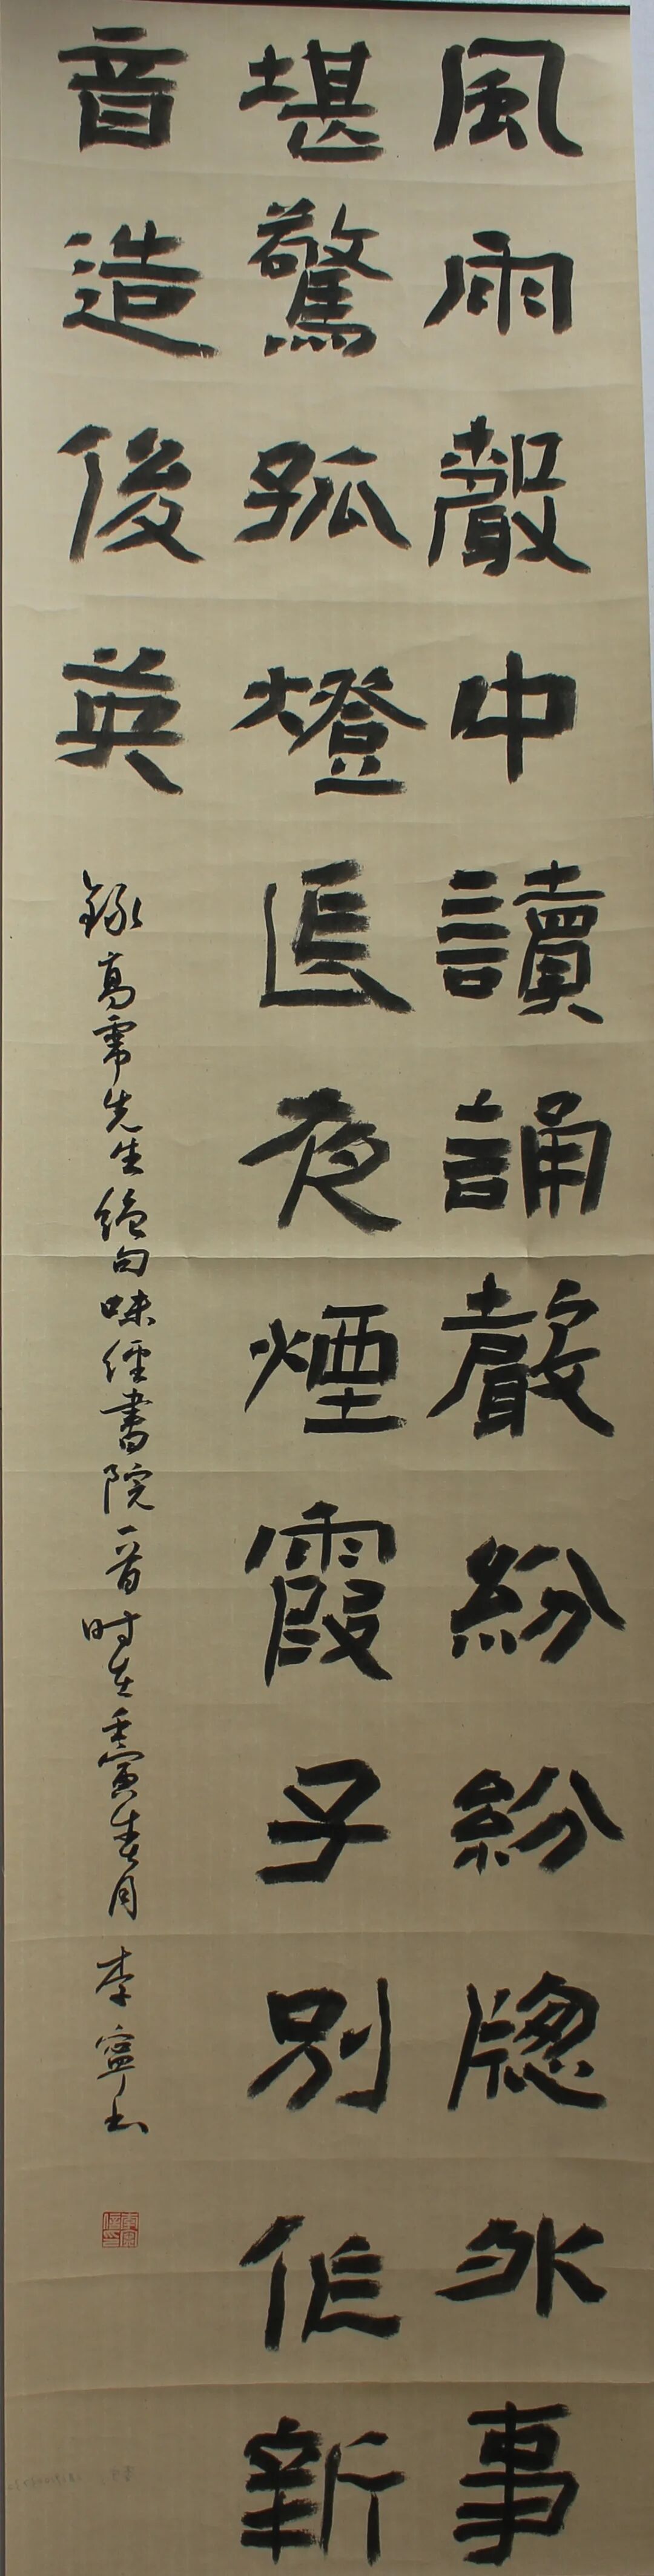 風雨聲中讀誦聲紛紛牕外事
堪驚孤燈長夜煙霞子別作新
音造後英
錄高霈先生絶句味經書院一首時在壬寅春月李寧書